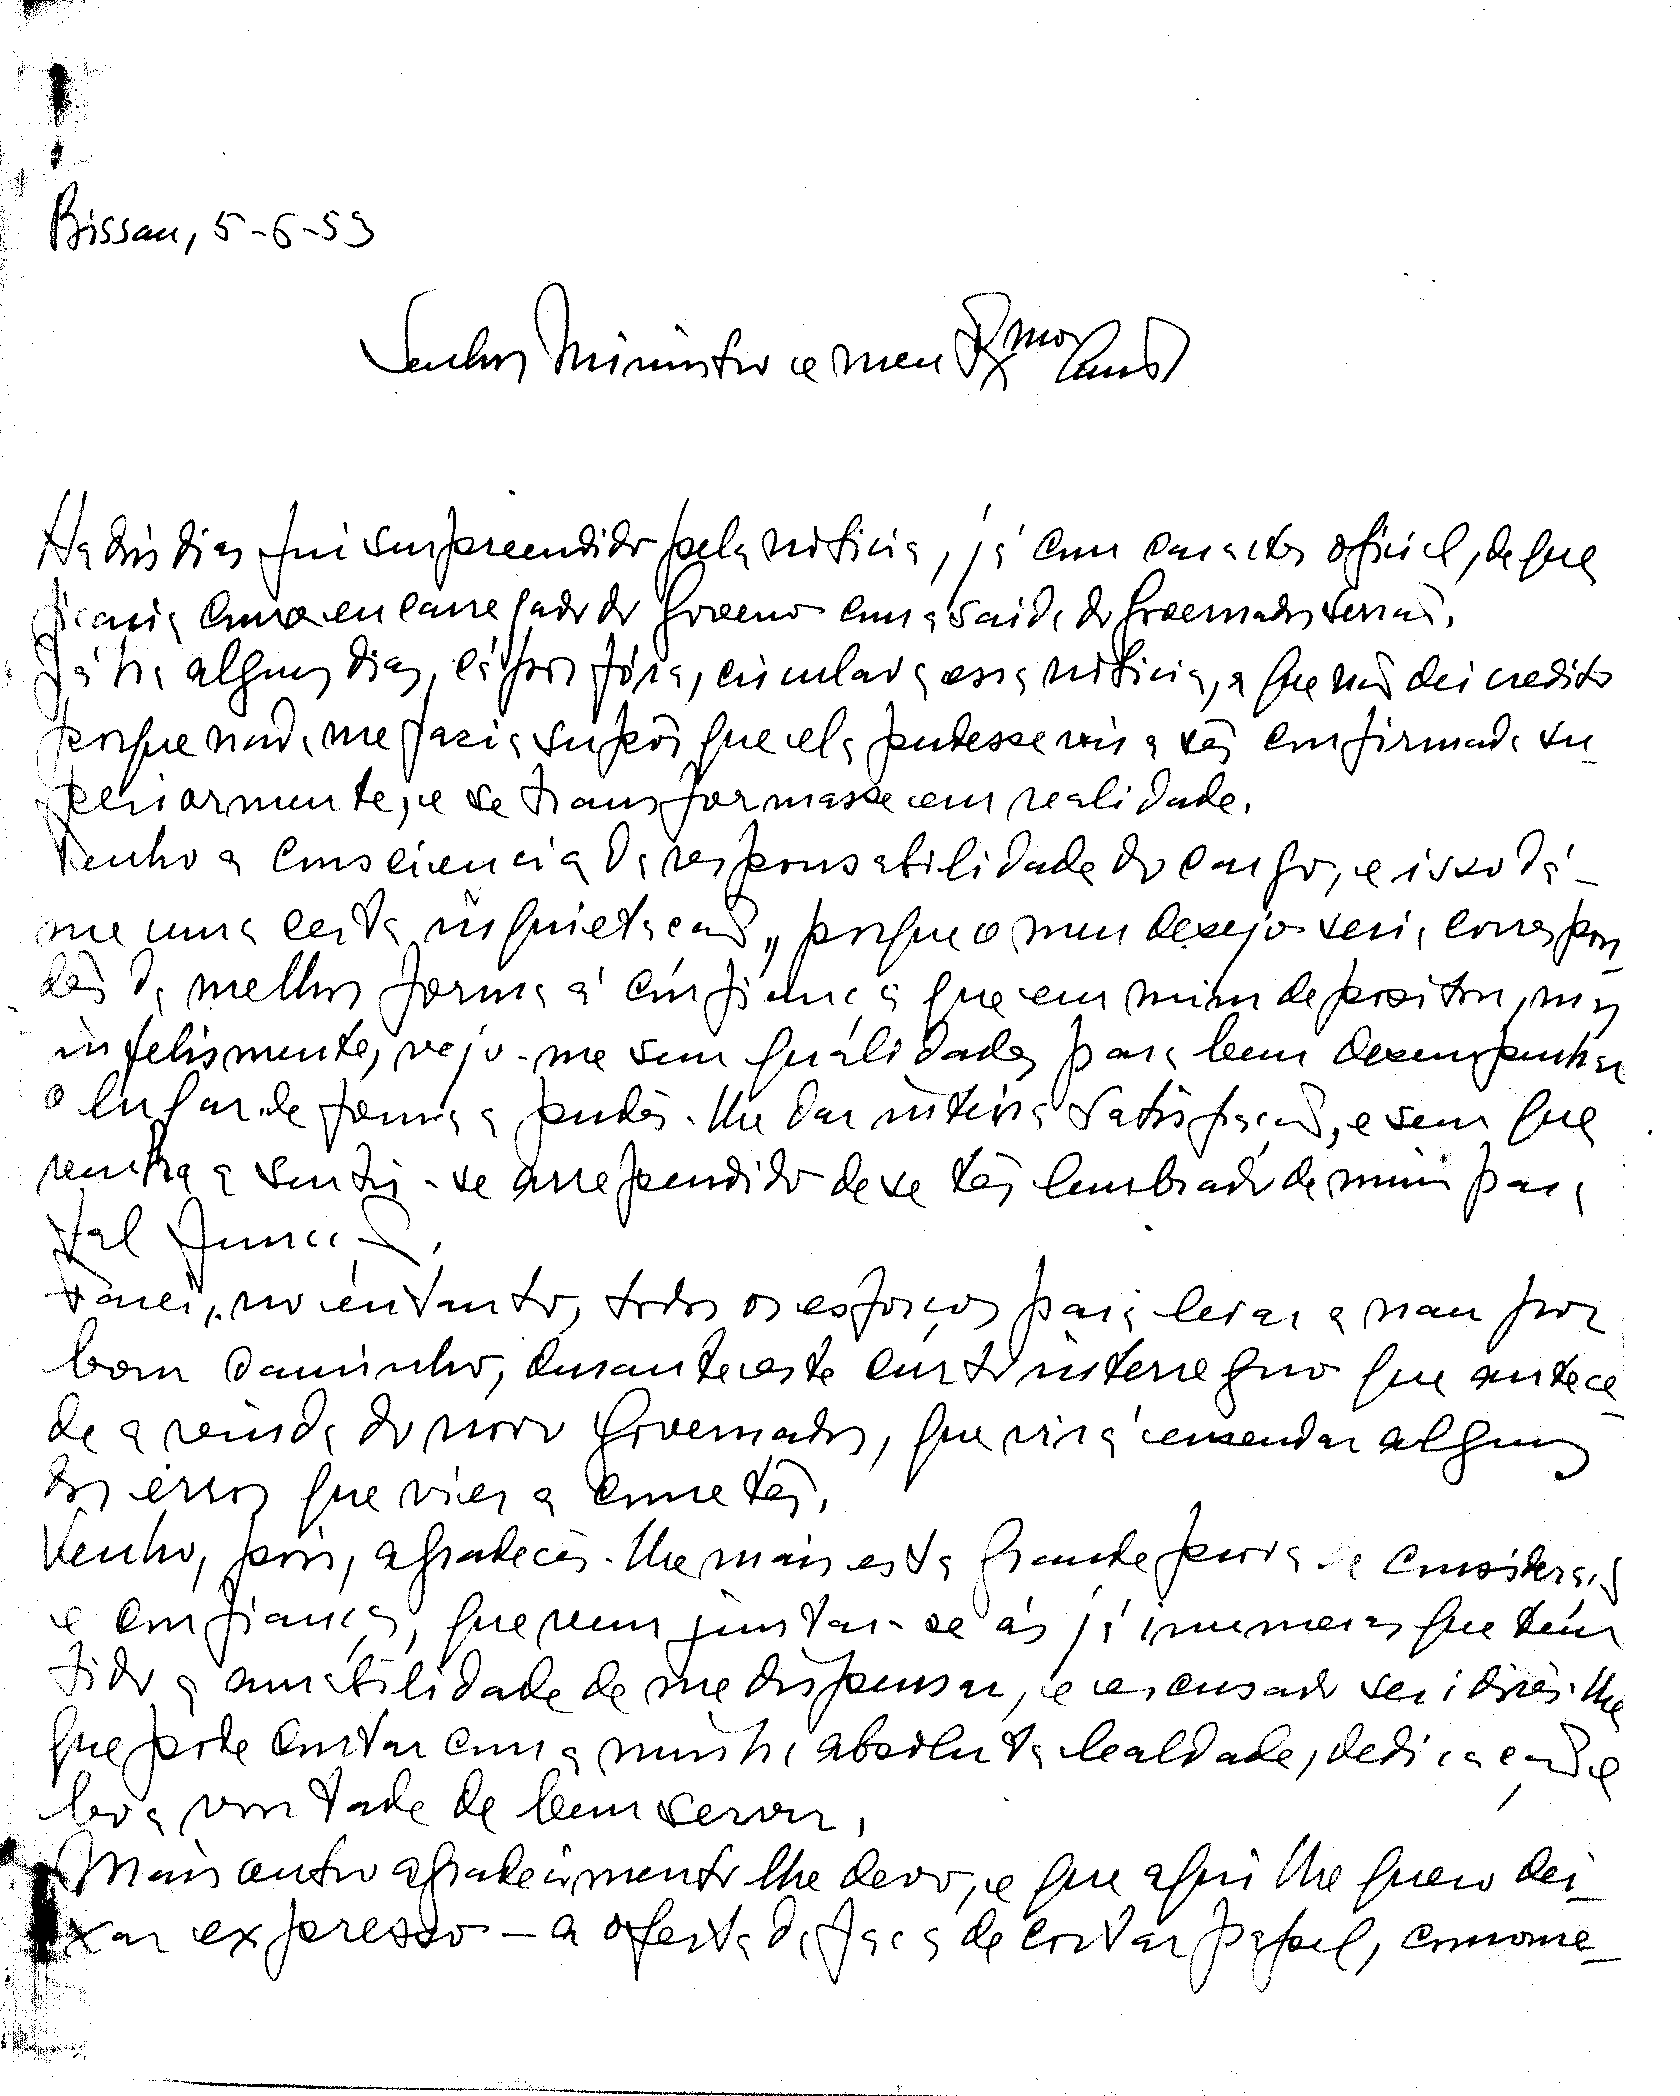 Bissau, 5-6-53
Senhor Ministro e meu Exmo Amº
Há dois dias fui surpreendido pela noticia, já com caracter oficial, de que
ficaria como encarregado do Governo com a saida do Governador Serrão.
Já ha alguns dias, cá por fóra, circulava essa noticia, a que não dei credito
porque nada me fazia supôr que ela pudesse vir a ser confirmada su-
periormente, e se transformasse em realidade.
Tenho a consciencia da responsabilidade do cargo, e isso dá-
me uma certa inquietação, porque o meu desejo seria correspon-
der da melhor forma á confiança que em mim depositou, mas
infelismente, vejo-me sem qualidades para bem desempenhar
o lugar de forma a poder-lhe dar inteira satisfação, e sem que
venha a sentir-se arrependido de se ter lembrado de mim para
tal função.
Farei, no entanto, todos os esforços para levar a nau por
bom caminho, durante este curto interregno que antece-
de a vinda do novo Governador, que virá emendar alguns
dos erros que vier a cometer.
Venho, pois, agradecer-lhe mais esta grande prova de consideração
e confiança, que vem juntar-se ás já inumeras que tem
tido a amabilidade de me dispensar, e escusado será dizer-lhe
que pode contar com a minha absoluta lealdade, dedicação e
boa vontade de bem servir.
Mais outro agradecimento lhe devo, e que aqui lhe quero dei-
xar expresso - a oferta da faca de cortar papel, como me-